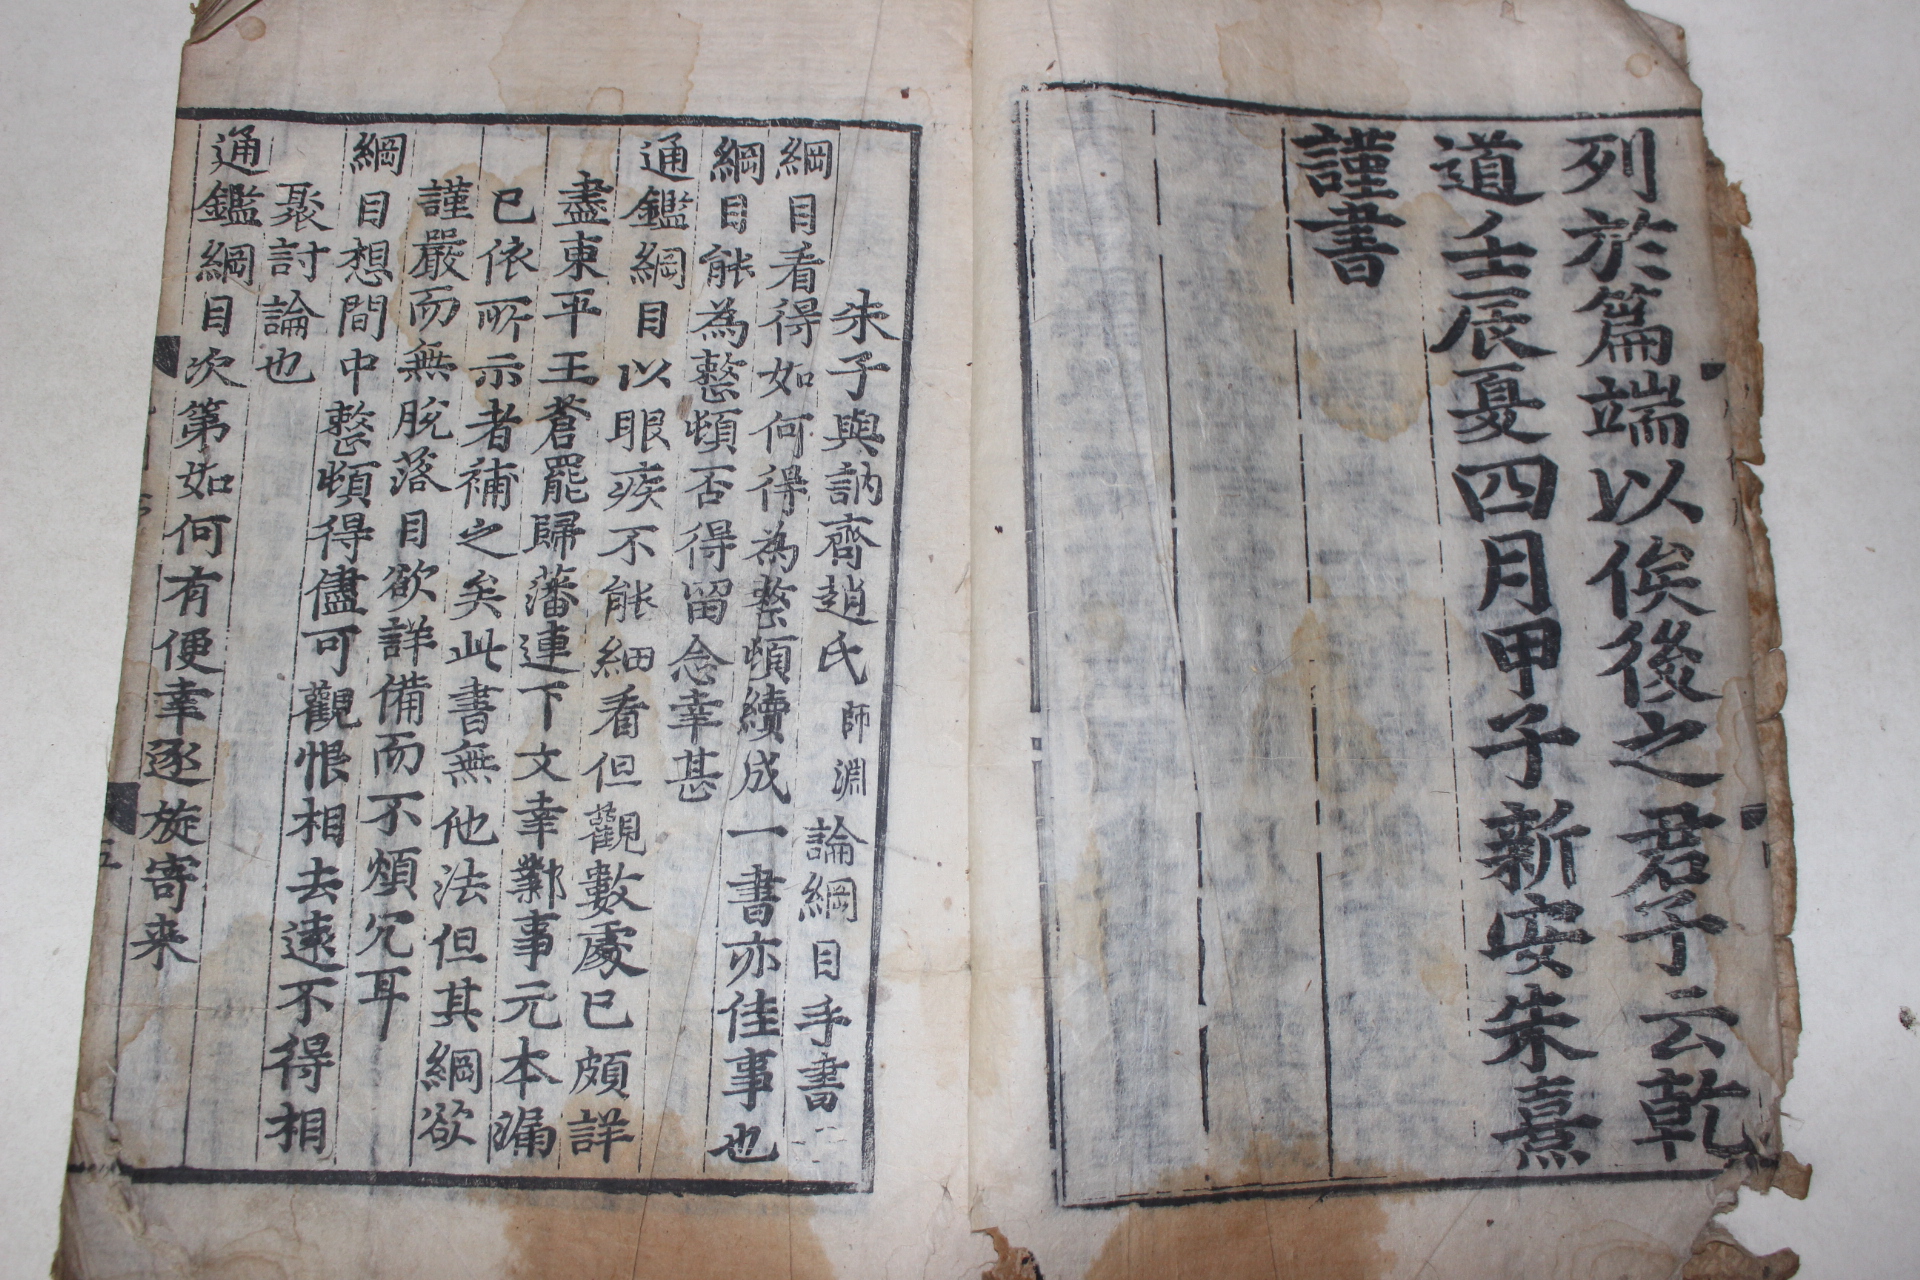 列於篇端以俟後之君子云乾
道壬辰夏四月甲子新安朱熹
謹書
朱子與訥齋趙氏師淵論綱目手書
綱目看得如何得為整頓續成一書亦佳事也
綱目能為整頓否得留念幸甚
通鑑綱目以眼疾不能細看但觀數處已頗詳
盡東平王蒼罷歸藩連下文幸鄴事元本漏
已依所示者補之矣此書無他法但其綱欲
謹嚴而無脫落目欲詳備而不煩冗耳
綱目想間中整頓得儘可觀恨相去遠不得相
聚討論也
通鑑綱目次第如何有便幸逐旋寄来
五